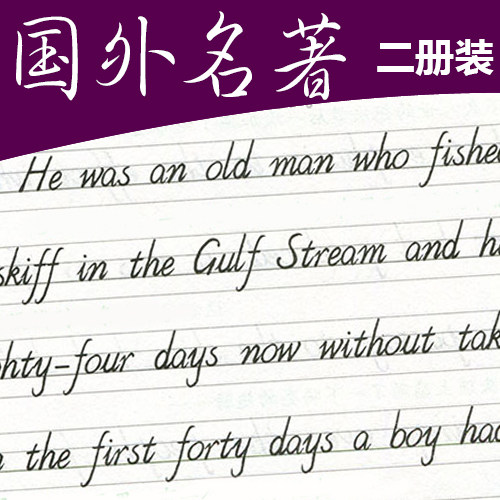 国外名著 二册装
He was an old man who fishe
skiff in the Gulf Stream and h
hty-four days now without tak
the first forty days a boy had